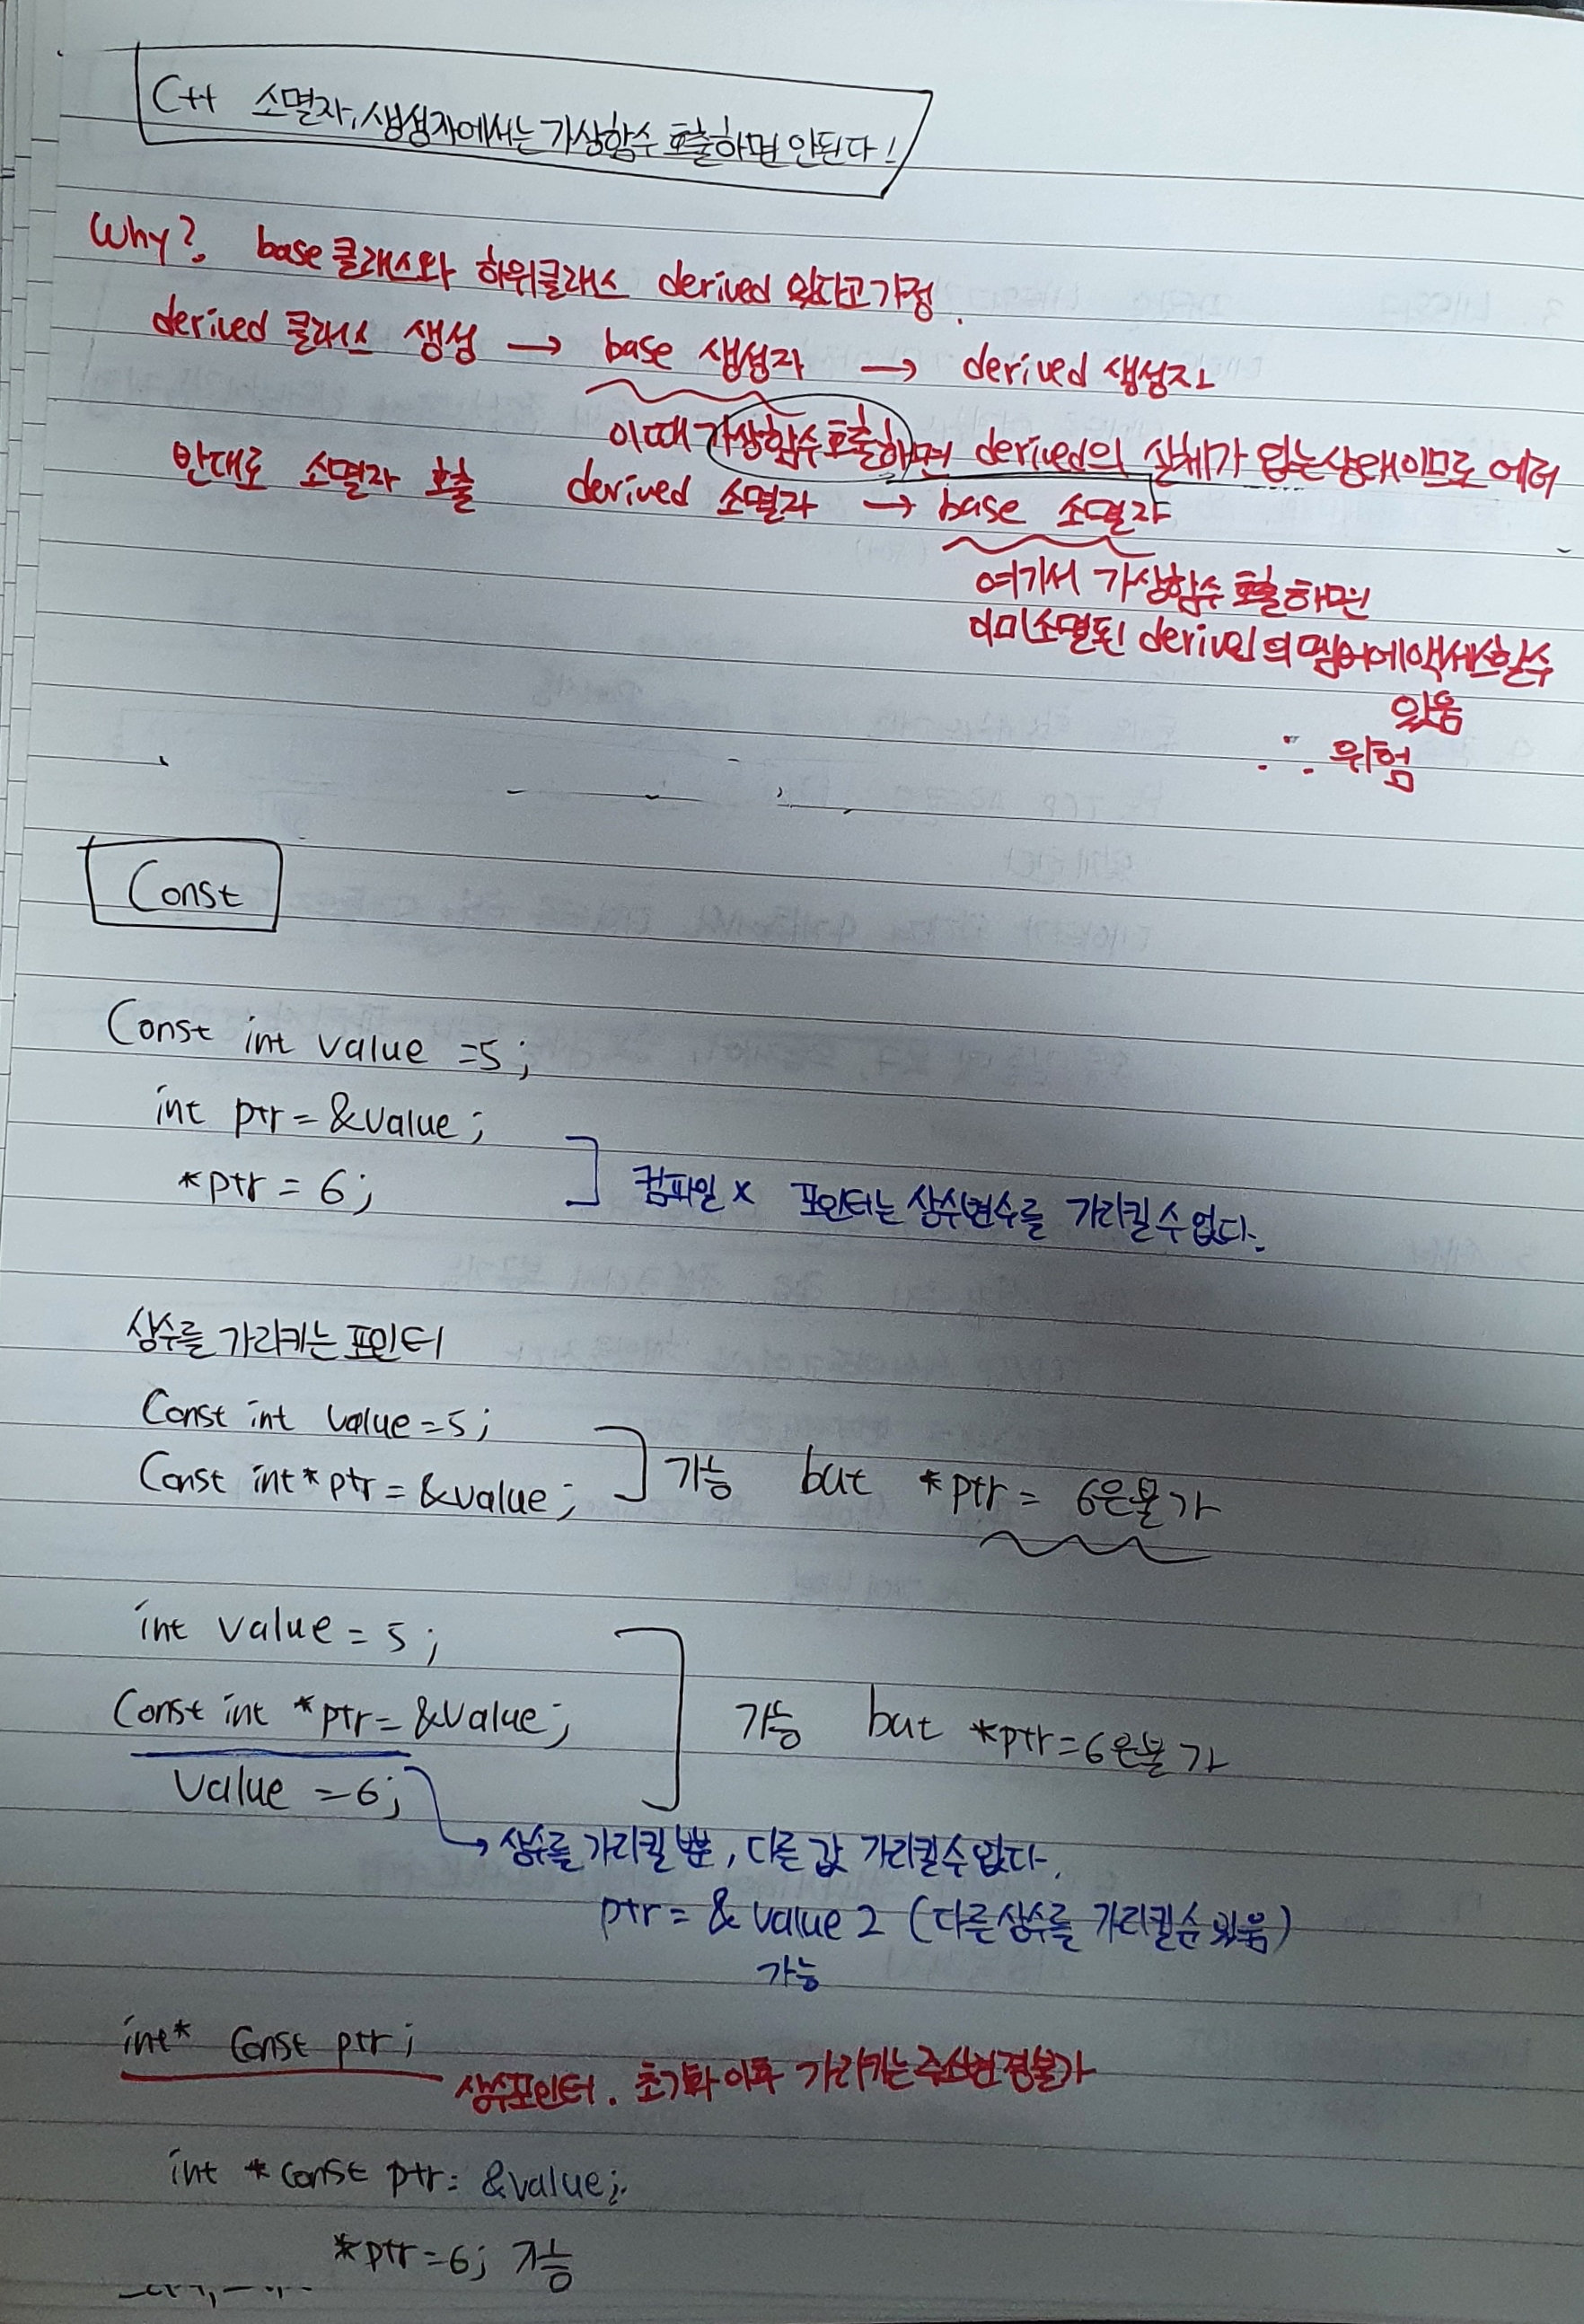 C++ 소멸자, 생성자에서는 가상함수 호출하면 안된다!
Why? base 클래스와 하위클래스 derived 있다고 가정.
derived 클래스 생성 → base 생성자 → derived 생성자
이때 가상함수 호출하면 derived의 실체가 없는상태이므로 에러
반대로 소멸자 호출 derived 소멸자 → base 소멸자
여기서 가상함수 호출하면
이미소멸된 derived의 멤버에액세스할수
있음
∴ 위험
Const
Const int value =5;
int ptr = &value;
*ptr = 6;
컴파일 x 포인터는 상수변수를 가리킬수없다.
상수를 가리키는 포인터
Const int value=5;
Const int* ptr = &value;
가능 but *ptr = 6은불가
int value = 5;
Const int *ptr = &value;
value = 6;
가능 but *ptr=6은불가
→ 상수를 가리킬 뿐, 다른값 가리킬수없다.
ptr = & value 2 (다른상수를 가리킬순있음)
가능
int* Const ptr;
상수포인터. 초기화 이후 가리키는주소변경불가
int * const ptr = &value;
*ptr=6; 가능